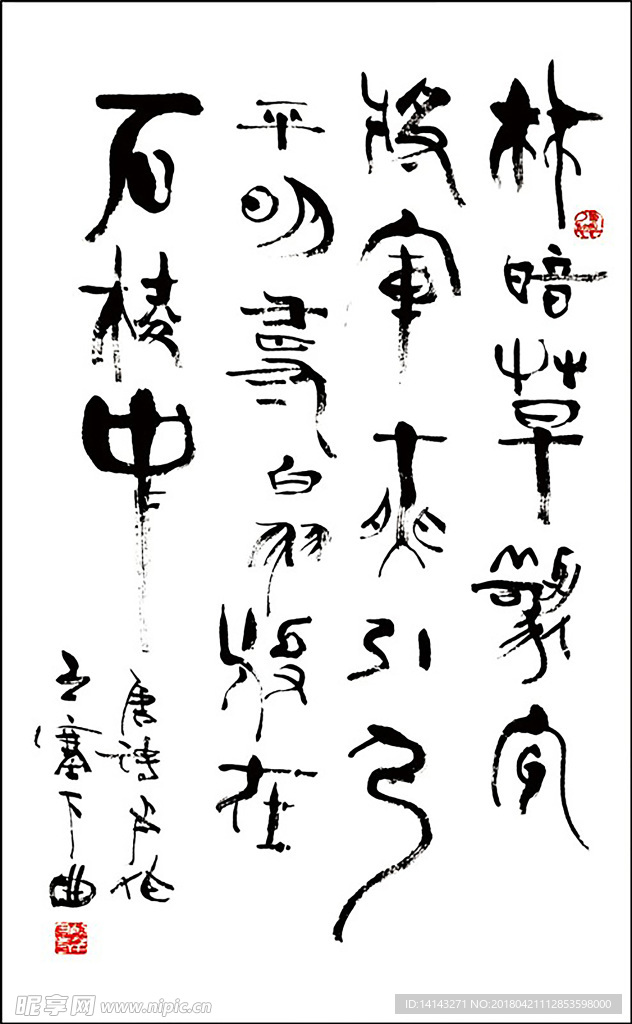 林暗草驚風
将軍夜引弓
平明尋白羽沒在
石棱中
唐詩卢纶
之塞下曲
昵享网 www.nipic.cn
ID:14143271 NO:20180421112853598000